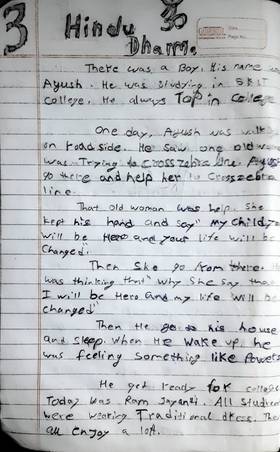 3 Hindu ॐ
Dharma
There was a Boy. His name
Ayush. He was studying in
College. He always Top in College
One day, Ayush was
on Roadside. He saw one old
was Trying to cross zebra line. Ayush
go there and help her to cross zebra
line.
That old woman was help. She
kept his hand and say" my child, you
will be Hero and your life will be
changed"
Then She go from there. He
was thinking that" why She say that
I will be Hero and my life will be
changed"
Then He go to his house
and sleep. When He wake up, he
was feeling something like powers
He get ready for college
Today was Ram Jayanti. All Students
were wearing Traditional dress. They
all enjoy a lot.